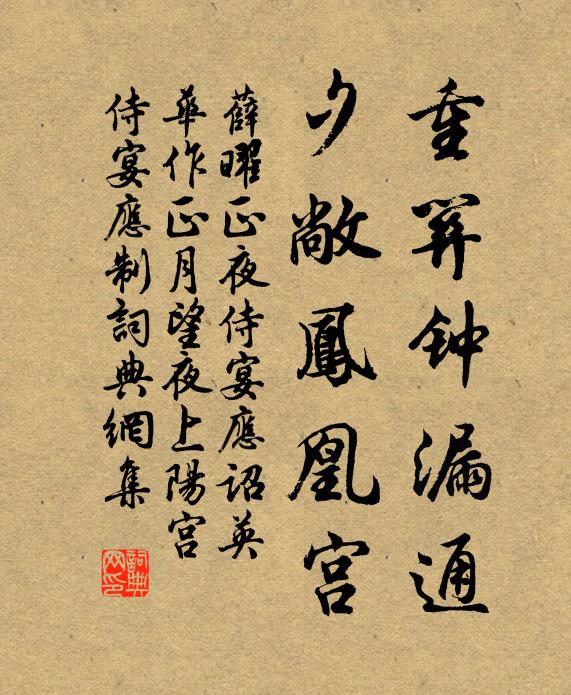 重關钟漏通
夕敞鳳凰宫
薛曜正夜侍宴應詔英
華作正月望夜上陽宫
侍宴應制詞典網集
詞典
网印